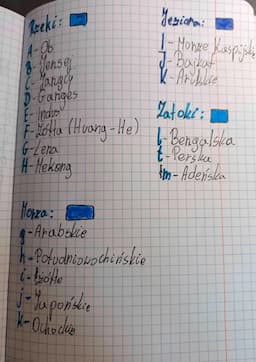 Rzeki:
A - Ob
B - Jensej
C - Jangcy
D - Ganges
E - Indus
F - Żółta (Huang-He)
G - Lena
H - Mekong
Morza:
g - Arabskie
h - Południowochińskie
i - Żółte
j - Japońskie
k - Ochockie
Jeziora:
I - Morze Kaspijskie
J - Bajkał
K - Aralskie
Zatoki:
l - Bengalska
ł - Perska
m - Adeńska